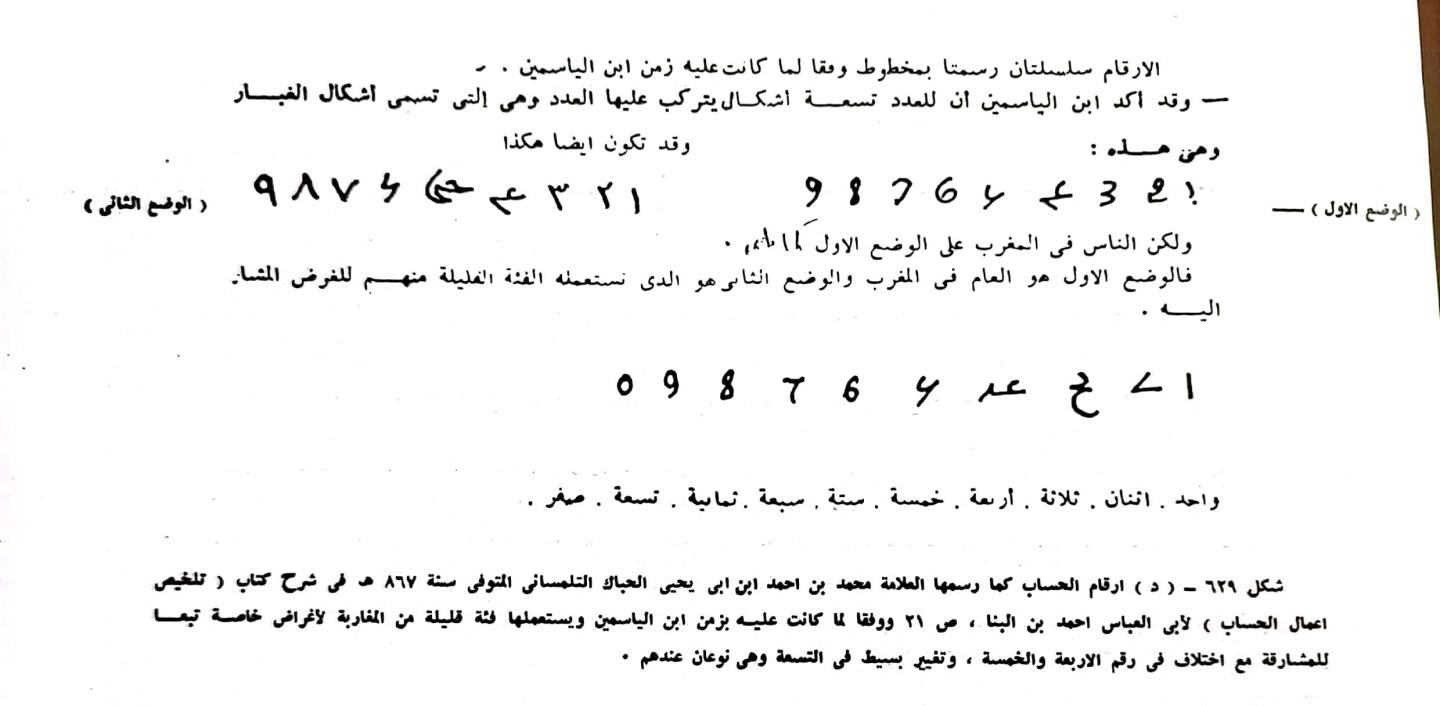 الارقام سلسلتان رسمتا بمخطوط وفقا لما كانت عليه زمن ابن الياسمين .
— وقد أكد ابن الياسمين أن للعدد تسعة أشكال يتركب عليها العدد وهى إلتى تسمى أشكال الغبار
وهى هذه : وقد تكون ايضا هكذا
( الوضع الاول ) — 1 2 3 6 7 8 9 ١ ٢ ٣ ٧ ٨ ٩ ( الوضع الثانى )
ولكن الناس فى المغرب على الوضع الاول .
فالوضع الاول هو العام فى المغرب والوضع الثانى هو الدى تستعمله الفئة القليلة منهم للغرض المشار
اليه .
ا ح عد 6 8 9 0
واحد . اثنان . ثلاثة . أربعة . خمسة . ستة . سبعة . ثمانية . تسعة . صفر .
شكل ٦٢٩ – ( د ) ارقام الحساب كما رسمها العلامة محمد بن احمد ابن ابى يحيى الحباك التلمسانى المتوفى سنة ٨٦٧ هـ فى شرح كتاب ( تلخيص
اعمال الحساب ) لأبى العباس احمد بن البنا ، ص ٢١ ووفقا لما كانت عليه بزمن ابن الياسمين ويستعملها فئة قليلة من المغاربة لأغراض خاصة تبعا
للمشارقة مع اختلاف فى رقم الاربعة والخمسة ، وتغيير بسيط فى التسعة وهى نوعان عندهم .